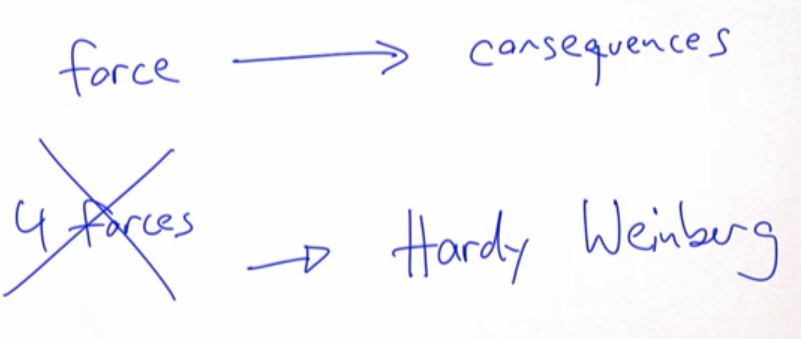 force → consequences
4 forces → Hardy Weinberg